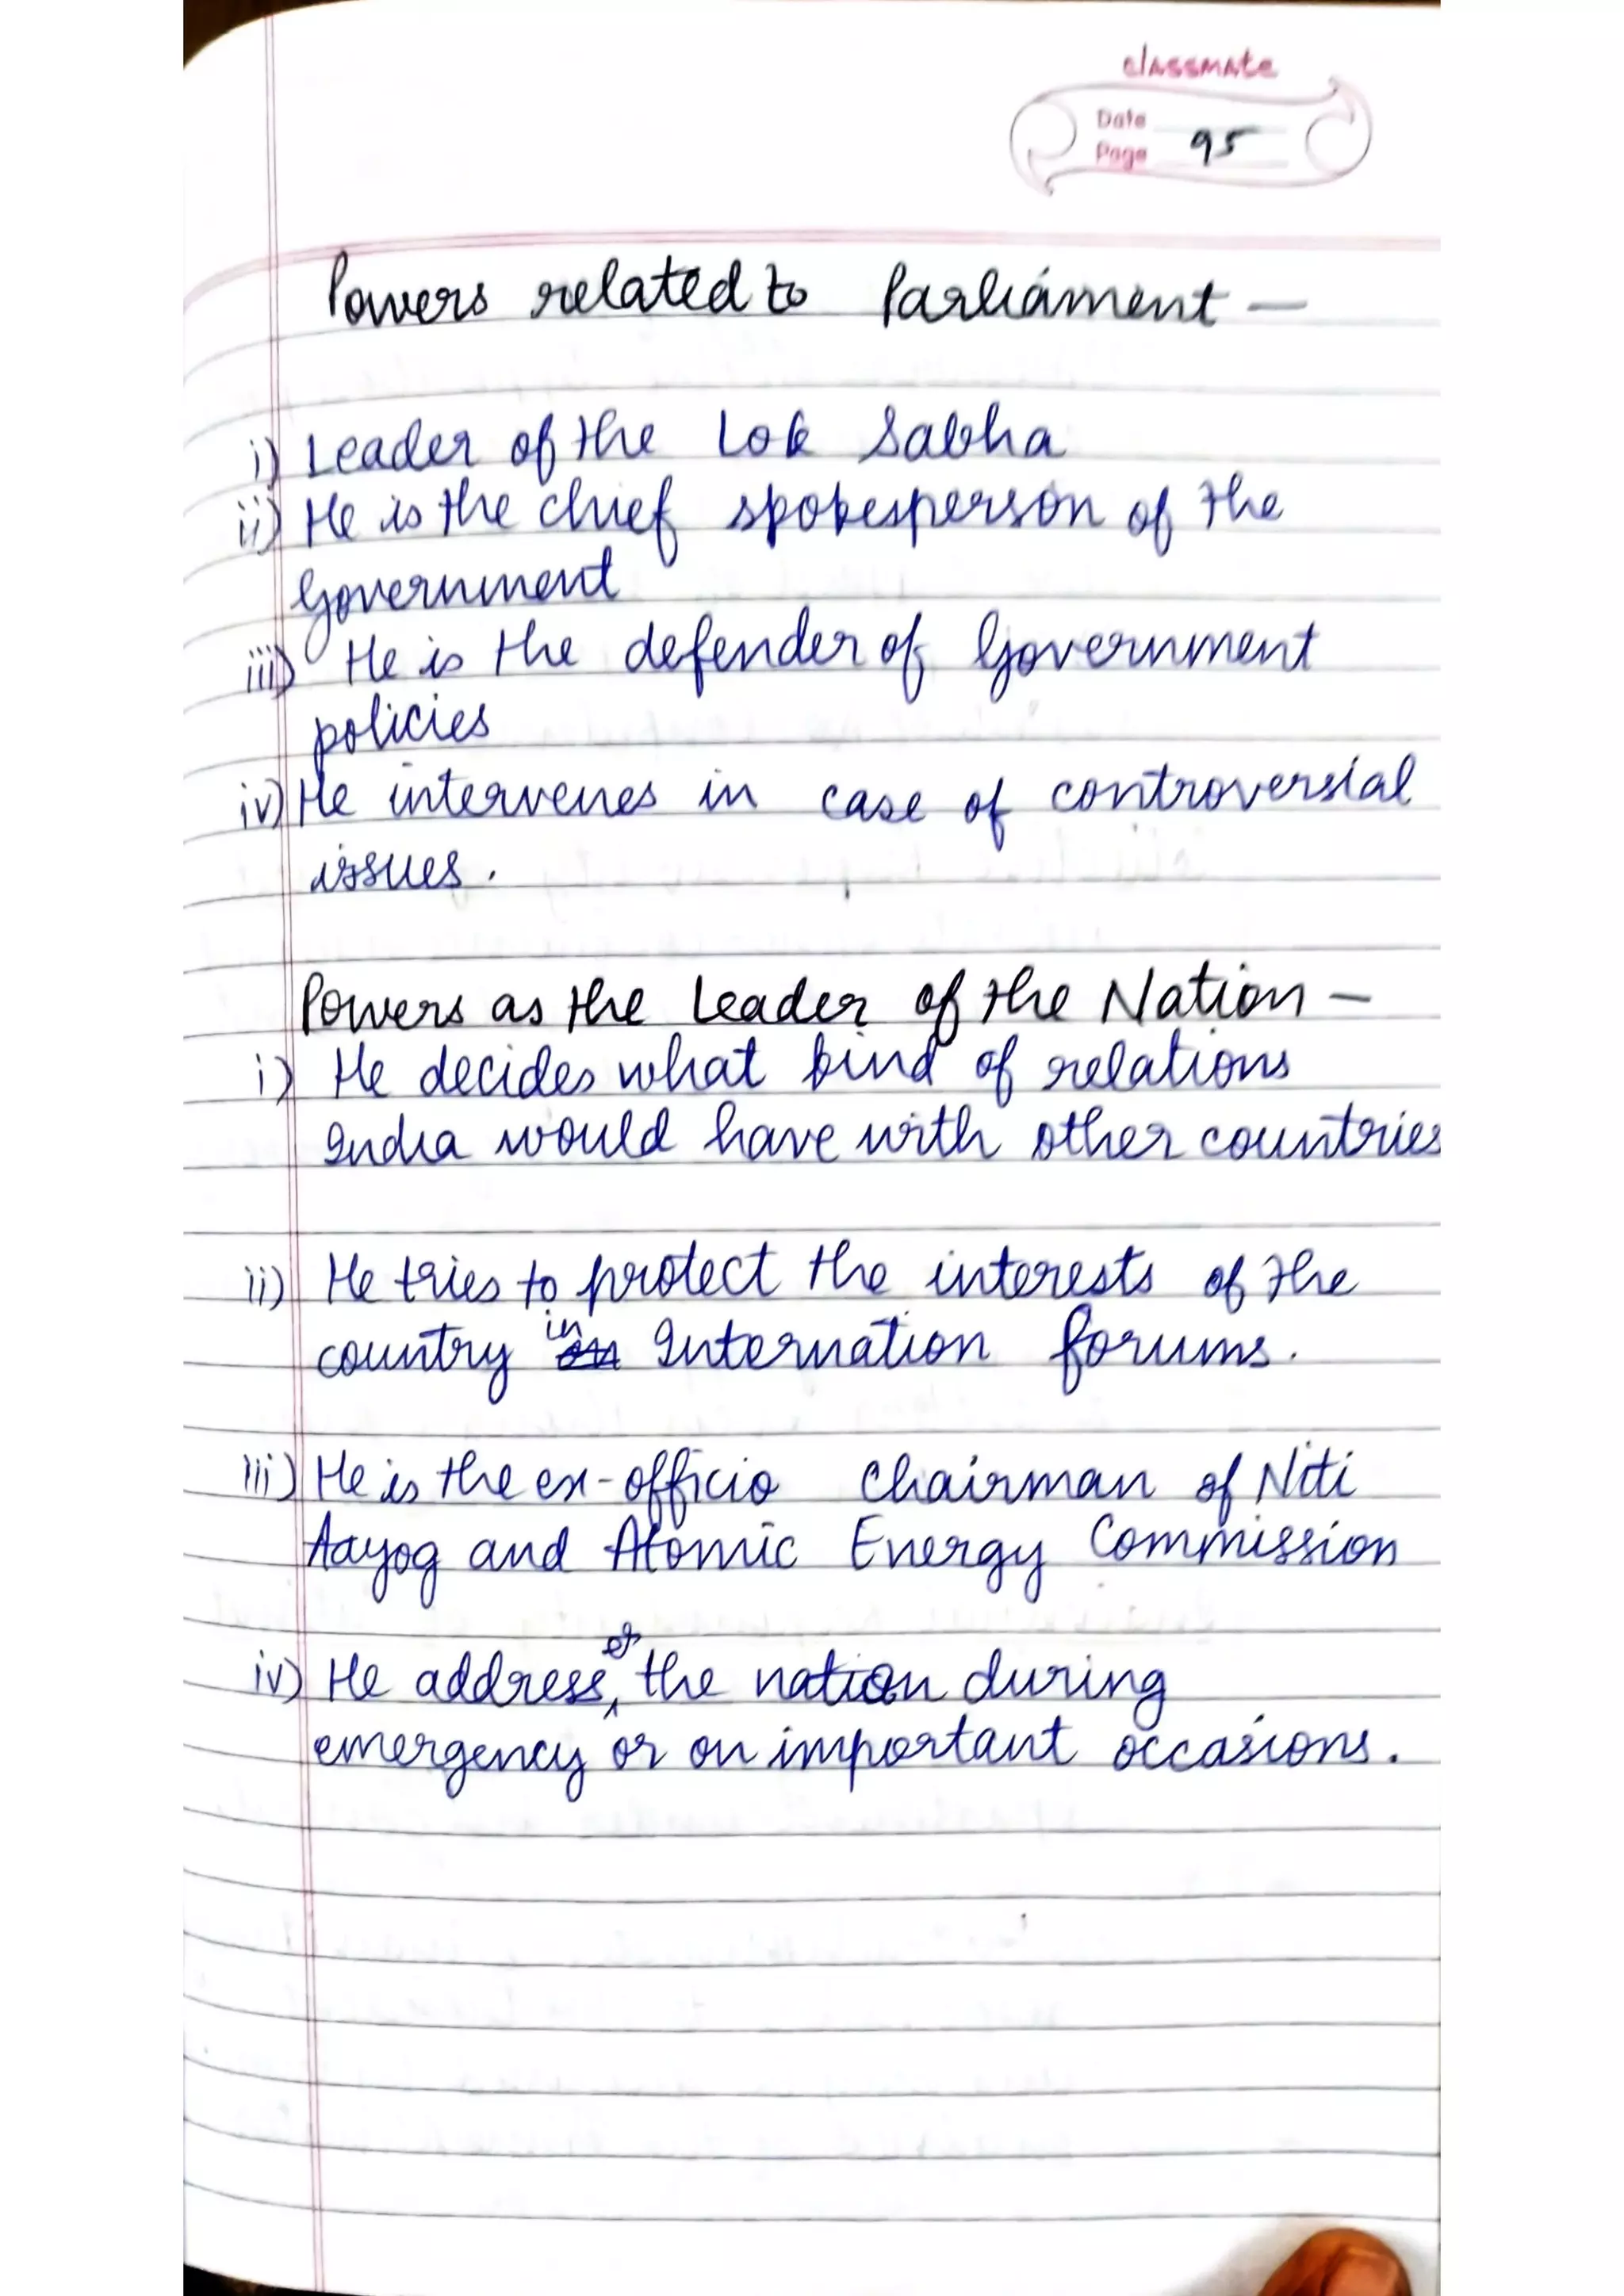 classmate
Date
Page 95
Powers related to Parliament —
i) Leader of the Lok Sabha
ii) He is the chief spokesperson of the
Government
iii) He is the defender of Government
policies
iv) He intervenes in case of controversial
issues.
Powers as the Leader of the Nation —
i) He decides what kind of relations
India would have with other countries
ii) He tries to protect the interests of the
country in Internation forums.
iii) He is the ex-officio Chairman of Niti
Aayog and Atomic Energy Commission
iv) He address, the nation during
emergency or on important occasions.